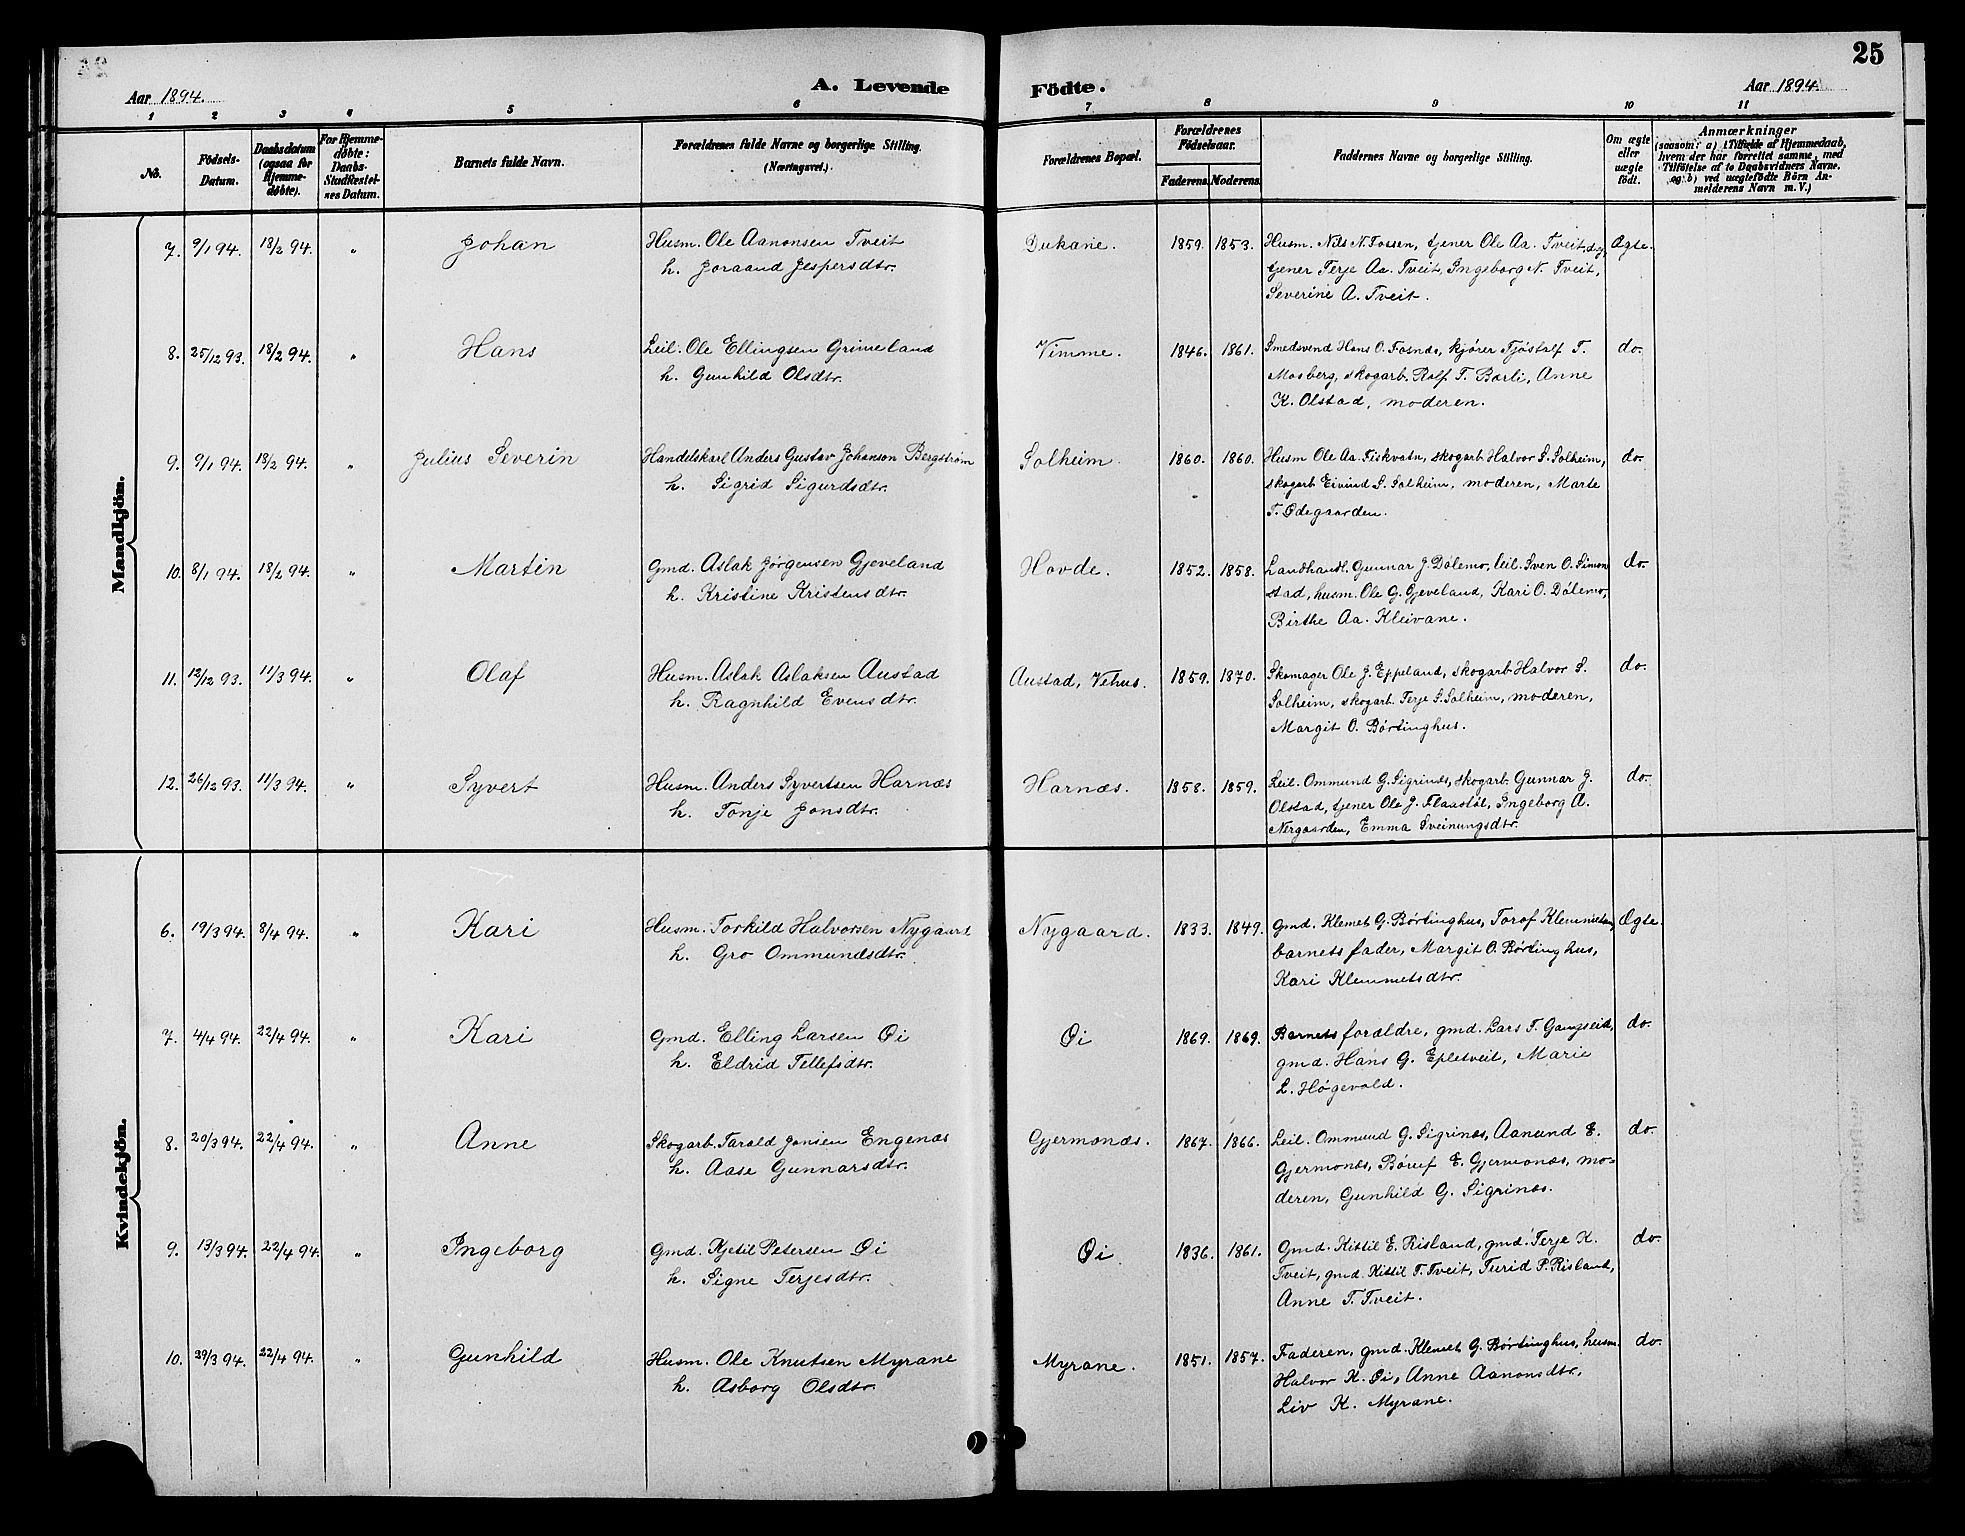 25
Aar 1894.
A. Levende Födte.
Aar 1894.
1 2 3 4 5 6 7 8 9 10 11
No.
Födsels-Datum.
Daabsdatum (ogsaa for Hjemme-döbte).
For Hjemme-döbte: Daabs-Stadfæstel-ses Datum.
Barnets fulde Navn.
Forældrenes fulde Navne og borgerlige Stilling.
(Næringsvei.)
Forældrenes Bopæl.
Forældrenes Födselsaar.
Faderens. Moderens.
Faddernes Navne og borgerlige Stilling.
Om ægte eller uægte födt.
Anmærkninger
(saasom: a) i Tilfælde af Hjemmedaab,
hvem der har forrettet samme, med
Tilföielse af to Daabsvidners Navne,
og b) ved uægtefödte Börn An-
melderens Navn m.V.)
Mandkjön.
7. 9/1 94. 18/2 94. " Johan Husm. Ole Aanonsen Tveit Dukane. 1859. 1853. Husm. Nils N. Fossen, tjener Ole Aa. Tveit, Ægte.
h. Joraand Jespersdtr. tjener Terje Aa. Tveit, Ingeborg N. Tveit,
Severine A. Tveit.
8. 25/12 93. 18/2 94. " Hans Leil. Ole Ellingsen Grimeland Vimme. 1846. 1861. Smedsvend Hans O. Fosnæs, kjører Tjøstolf T. do.
h. Gunhild Olsdtr. Mosberg, skogarb. Rolf T. Barli, Anne
K. Olstad, moderen.
9. 9/1 94. 18/2 94. " Julius Severin Handelskarl Anders Gustav Johanson Bergstrøm Solheim. 1860. 1860. Husm Ole Aa. Fiskvatn, skogarb Halvor S. Solheim, do.
h. Sigrid Sigurdsdtr. skogarb Eivind S. Solheim, moderen, Marte
T. Ødegaarden.
10. 8/1 94. 18/2 94. " Martin Gmd. Aslak Jørgensen Gjeveland Hovde. 1852. 1858. Landhandl. Gunnar J. Dølemo, leil. Sven O. Simon do.
h. Kristine Kristensdtr. stad, husm. Ole G. Gjeveland, Kari O. Dølemo,
Birthe Aa. Kleivane.
11. 12/12 93. 11/3 94. " Olaf Husm. Aslak Aslaksen Austad Austad, Vehus. 1859. 1870. Skomager Ole J. Eppeland, skogarb Halvor S. do.
h. Ragnhild Evensdtr. Solheim, skogarb. Terje S. Solheim, moderen,
Margit O. Børtinghus.
12. 26/12 93. 11/3 94. " Syvert Husm. Anders Syvertsen Harnæs Harnæs. 1858. 1859. Leil. Ommund G. Sigrinæs, skogarb. Gunnar J. do.
h. Tonje Jonsdtr. Olstad, tjener Ole J. Flaastøl, Ingeborg A.
Nergaarden, Emma Sveinungsdtr.
Kvindekjön.
6. 19/3 94. 8/4 94. " Kari Husm. Torkild Halvorsen Nygaard Nygaard. 1833. 1849. Gmd. Klemet G. Børtinghus, Torof Klemmetsen, Ægte.
h. Gro Ommundsdtr. barnets fader, Margit O. Børtinghus,
Kari Klemmetsdtr.
7. 4/4 94. 22/4 94. " Kari Gmd. Elling Larsen Øi Øi 1869. 1869. Barnets forældre, gmd. Lars T. Gangseid, do.
h. Eldrid Tellefsdtr. gmd. Hans G. Epletveit, Marie
L. Høgevold.
8. 20/3 94. 22/4 94. " Anne Skogarb. Tarald Jonsen Engenæs Gjermonæs. 1867. 1866. Leil. Ommund G. Sigrinæs, Aanund E. do.
h. Aase Gunnarsdtr. Gjermonæs, E. Gjermonæs, mo-
deren, Gunhild G. Sigrinæs.
9. 13/3 94. 22/4 94. " Ingeborg Gmd. Kjetil Petersen Øi Øi 1836. 1861. Gmd. Kittil E. Risland, gmd. Terje K. do.
h. Signe Terjesdtr. Tveit, gmd. Kittil T. Tveit, Turid P. Risland,
Anne T. Tveit.
10. 29/3 94. 22/4 94. " Gunhild Husm. Ole Knutsen Myrane Myrane. 1851. 1857. Faderen, gmd. Klemet G. Børtinghus, husm. do.
h. Asborg Olsdtr. Halvor K. Øi, Anne Aanonsdtr.,
Liv K. Myrane.